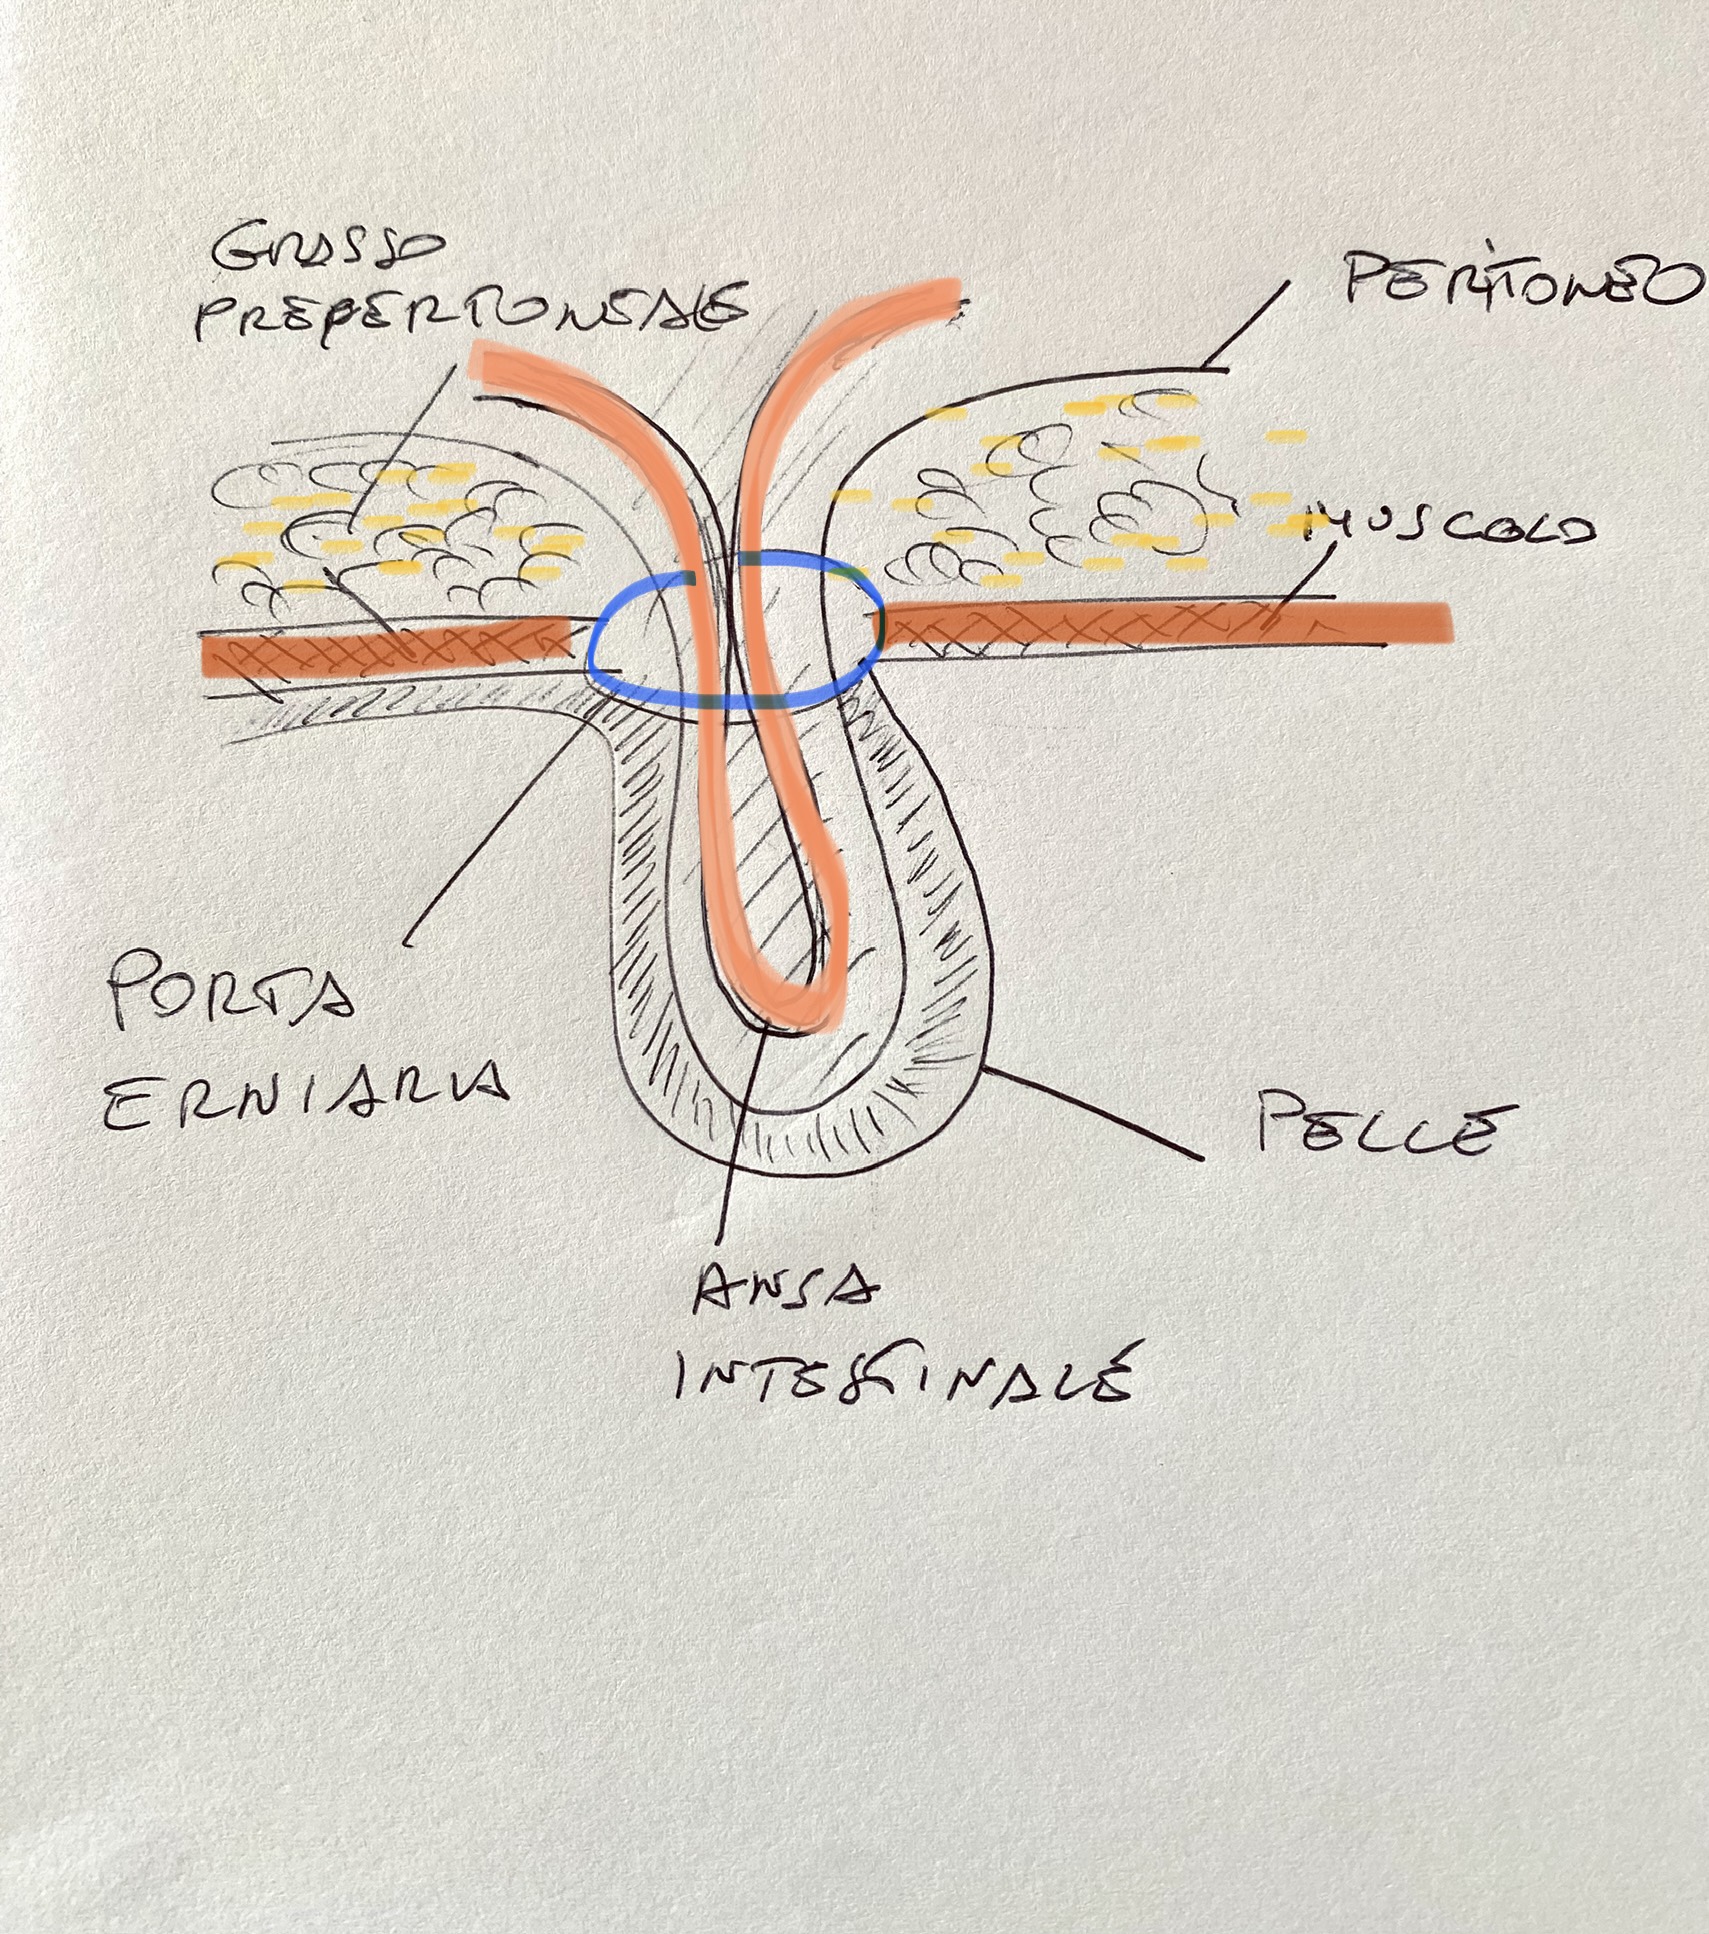 GRASSO
PREPERTONEALE
PERITONEO
MUSCOLO
PORTA
ERNIARIA
PELLE
ANSA
INTESTINALE